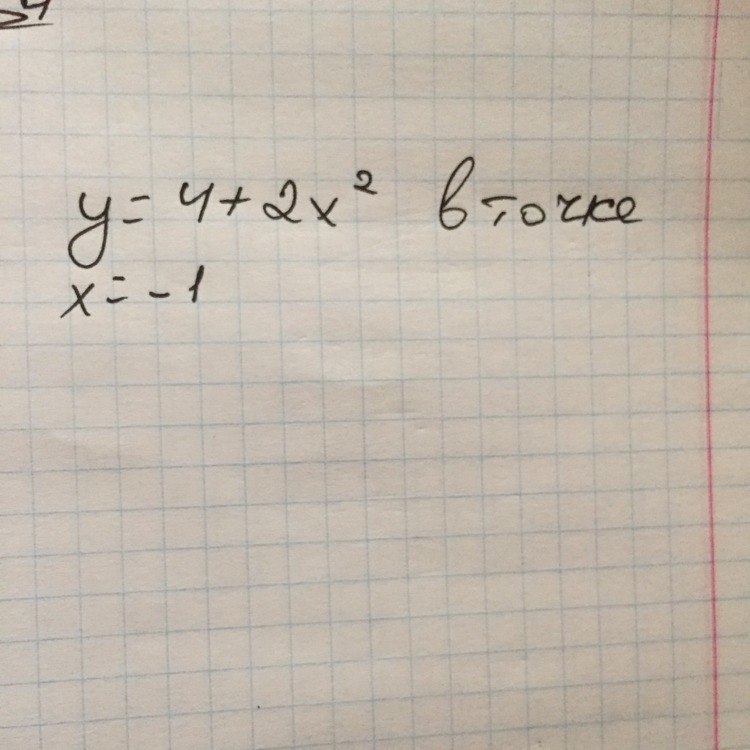 y = 4 + 2x² в точке
x = -1